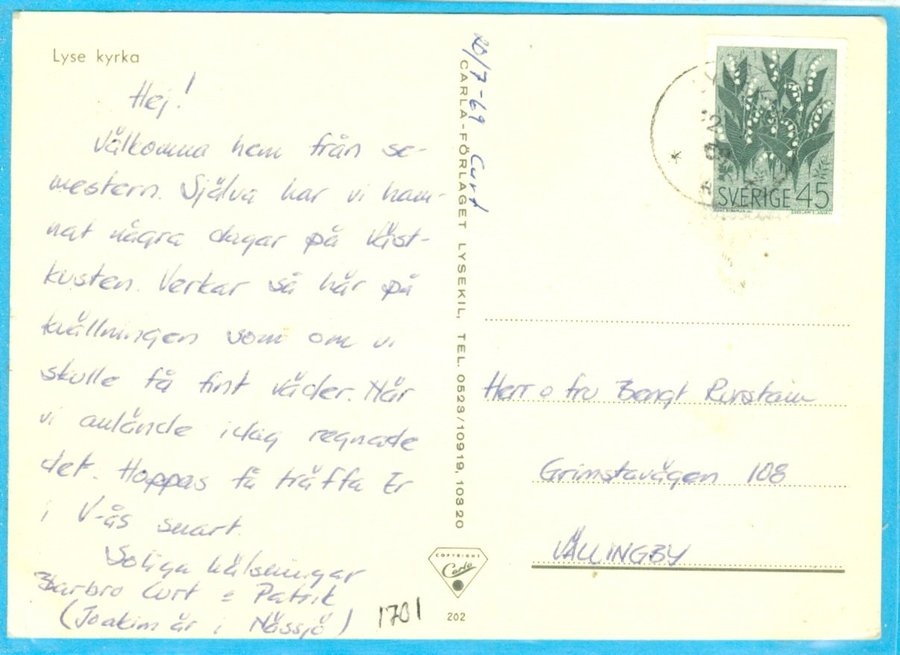 Lyse kyrka
Hej!
Välkomna hem från se-
mestern. Själva har vi ham-
nat några dagar på väst-
kusten. Verkar så här på
kvällningen som om vi
skulle få fint väder. När
vi anlände idag regnade
det. Hoppas få träffa Er
i V-ås snart.
Soliga hälsningar
Barbro Curt & Patrik
(Joakim är i Nässjö)
1701
/7-69 Curt
CARLA-FÖRLAGET LYSEKIL, TEL. 0523/10919, 10320
COPYRIGHT
Carla
202
SVERIGE 45
Herr o fru Bengt
Grimstavägen 108
VÄLLINGBY